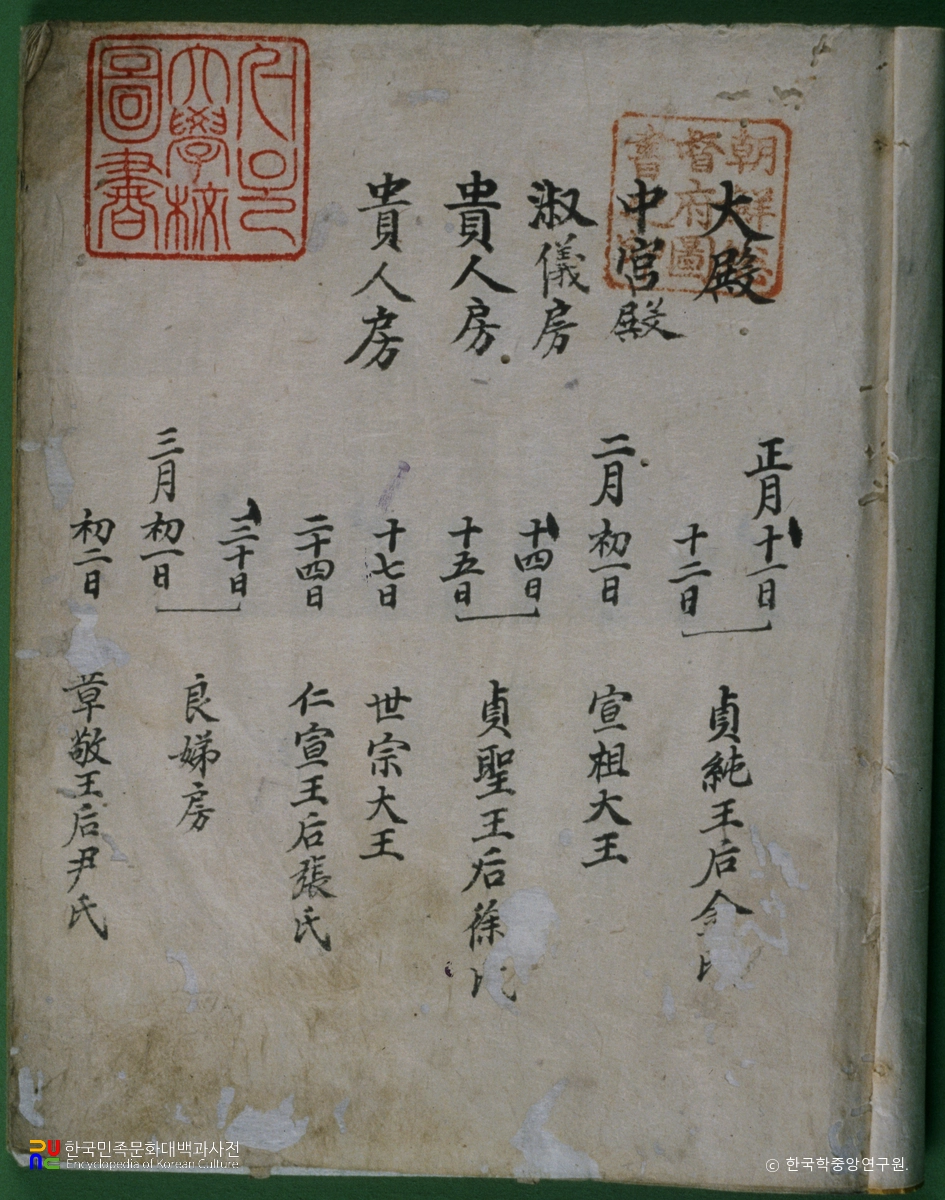 大殿
中宮殿
淑儀房
貴人房
貴人房
正月十一日
十二日
貞純王后金氏
二月初一日
宣祖大王
十四日
十五日
貞聖王后徐氏
十七日
世宗大王
二十四日
仁宣王后張氏
三十日
三月初一日
良娣房
初二日
章敬王后尹氏
朝鮮總
督府圖
書
서울
大學校
圖書
한국민족문화대백과사전
Encyclopedia of Korean Culture
ⓒ 한국학중앙연구원.